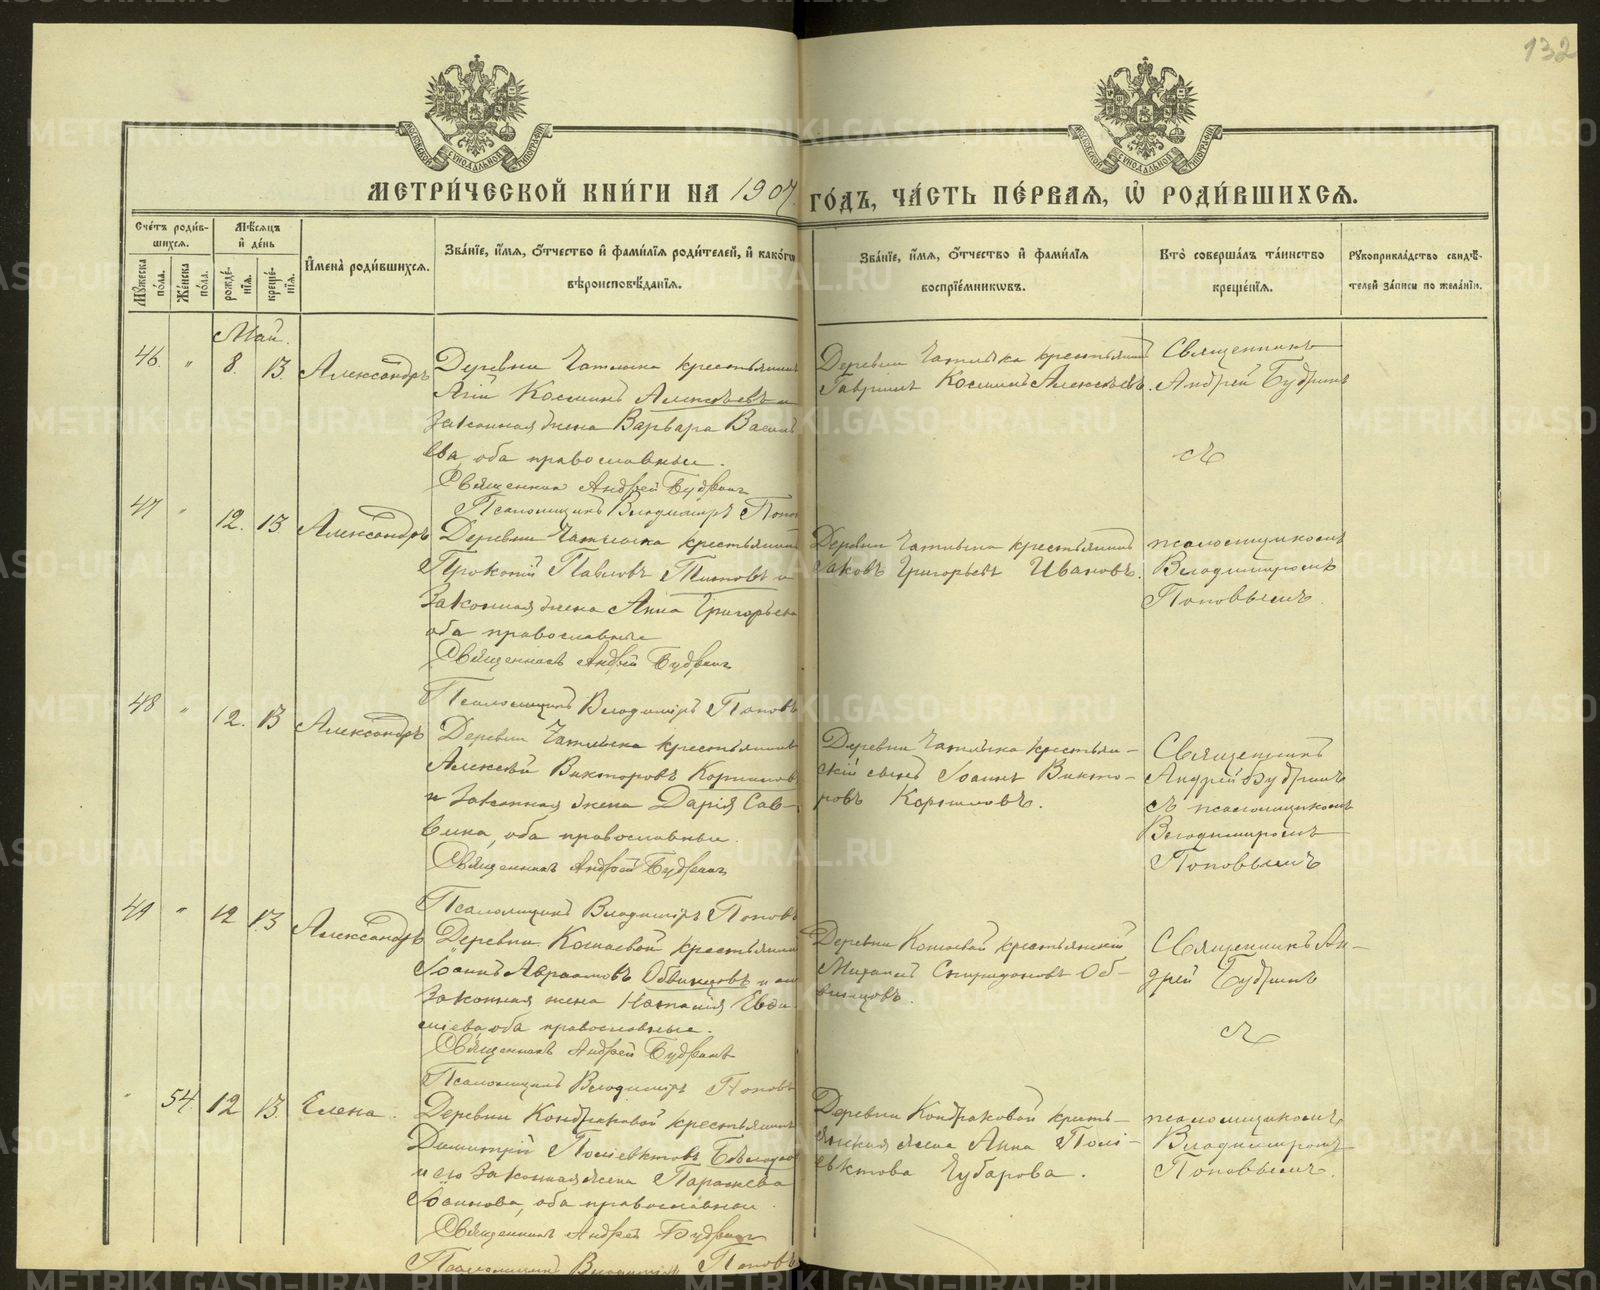 132
МОСКОВСКОЙ СѴНОДАЛЬНОЙ ТИПОГРАФІИ
МОСКОВСКОЙ СѴНОДАЛЬНОЙ ТИПОГРАФІИ
МЕТРИ́ЧЕСКОЙ КНИ́ГИ НА 1907 ГО́ДЪ, ЧА́СТЬ ПЕ́РВАЯ, Ѡ҆ РОДИ́ВШИХСѦ.
Сче́тъ роди́в-
шихся.
Мѣ́сяцъ
и҆ де́нь
Мꙋ́жеска
по́ла.
Же́нска
по́ла.
рожде́-
нїя.
креще́-
нїя.
И҆мена̀ роди́вшихся.
Зва́нїе, и҆́мя, ѻ҆́тчество и҆ фами́лїя роди́телей, и҆ како́гѡ
вѣроисповѣ́данїя.
Зва́нїе, и҆́мя, ѻ҆́тчество и҆ фами́лїя
воспрїе́мникѡвъ.
Кто̀ соверша́лъ та́инство
креще́нїя.
Рꙋкоприкла́дство свидѣ́-
телей за́писи по жела́нїю.
Май.
46 " 8. 13. Александръ
Деревни Чатлыка крестьянинъ
Косминъ Алексѣевъ и
законная жена Варвара Васил
ева, оба православные.
Священник Андрей Будрин
Псаломщикъ Владиміръ Попов
Деревни Чатлыка крестьянинъ
Гавріилъ Косминъ Алексѣевъ.
Священникъ
Андрей Будринъ
47 " 12. 13 Александръ
Деревни Чатлыка крестьянинъ
Прокопій Павловъ Титовъ и
законная жена Анна Григорьева
оба православные
Священникъ Андрей Будрин
Псаломщикъ Владиміръ Поповъ
Деревни Чатлыка крестьянинъ
Іаковъ Григорьевъ Ивановъ.
псаломщикомъ
Владимиромъ
Поповымъ
48 " 12. 13 Александръ
Деревни Чатлыка крестьянинъ
Алексѣй Викторовъ Коршнов
и законная жена Дарія Сав-
вина, оба православные.
Священник Андрей Будрин
Псаломщикъ Владиміръ Поповъ
Деревни Чатлыка крестьян-
скій сынъ Іоаннъ Викто-
ровъ
Священникъ
Андрей Будринъ
съ псаломщикомъ
Владимиромъ
Поповымъ
49 " 12 13 Александръ
Деревни Кошаевой крестьянин
Іоаннъ Авраамовъ Обвинцовъ и его
законная жена Наталія Евфи
міева, оба православные.
Священникъ Андрей Будринъ
Псаломщикъ Владиміръ Поповъ
Деревни Кошаевой крестьянскій
Михаилъ Спиридоновъ Об-
винцовъ.
Священникъ Ан-
дрей Будринъ
" 54 12 13. Елена.
Деревни Кондраковой крестьянинъ
Димитрій Поліевктовъ
и его законная жена Параскева
Іоаннова, оба православные.
Священникъ Андрей Будрин
Псаломщикъ Владиміръ Поповъ
Деревни Кондраковой кресть-
янская жена Анна Полі-
евктова Чубарова.
псаломщикомъ
Владимиромъ
Поповымъ.
METRIKI.GASO-URAL.RU